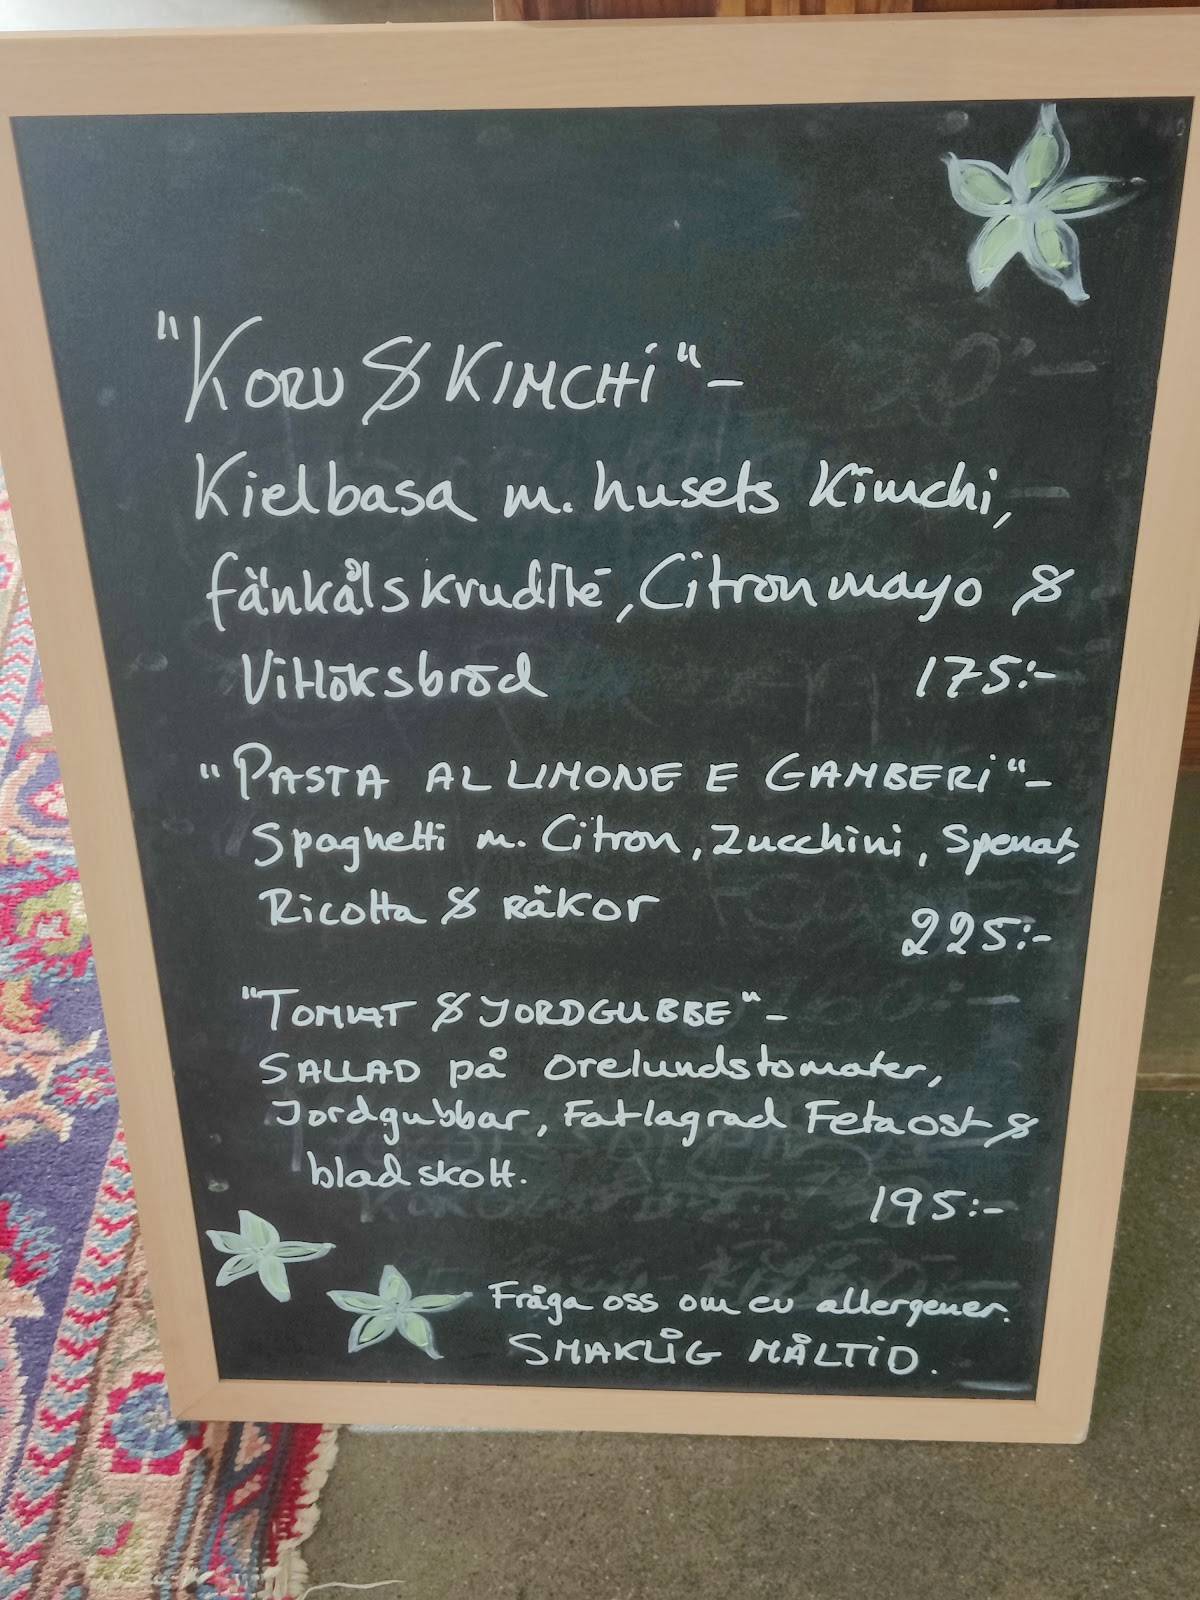 "KORV & KIMCHI" -
Kielbasa m. husets Kimchi,
fänkålskrudité, Citronmayo &
Vitlöksbröd 175:-
"PASTA AL LIMONE E GAMBERI" -
Spaghetti m. Citron, Zucchini, Spenat,
Ricotta & RÄKOR
225:-
"TOMAT & JORDGUBBE" -
SALLAD på Orelundstomater,
Jordgubbar, Fatlagrad Fetaost &
bladskott.
195:-
Fråga oss om ev allergener.
SMAKLIG MÅLTID.